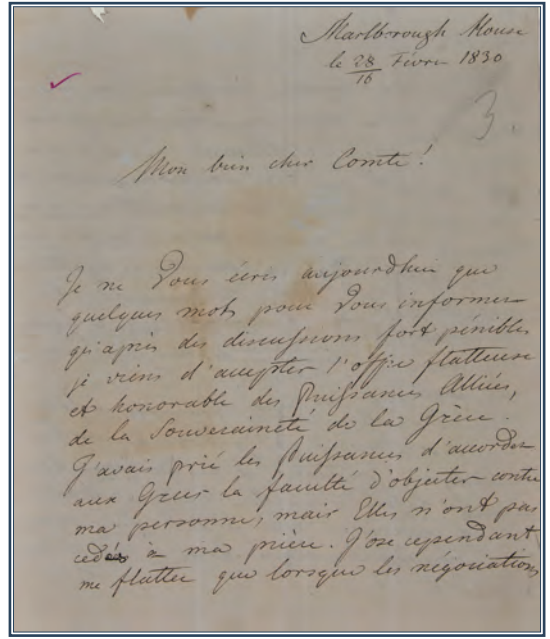 Marlborough House
le 28/16 Févr. 1830
3.
Mon bien cher Comte!
Je ne Vous écris aujourdhui que
quelques mots pour Vous informer
qu'après des discussions fort pénibles
je viens d'accepter l'offre flatteuse
et honorable des Puissances Alliées,
de la Souveraineté de la Grèce.
J'avais prié les Puissances d'accorder
aux Grecs la faculté d'objecter contre
ma personne, mais Elles n'ont pas
cédé à ma prière. J'ose cependant
me flatter que lorsque les négociations